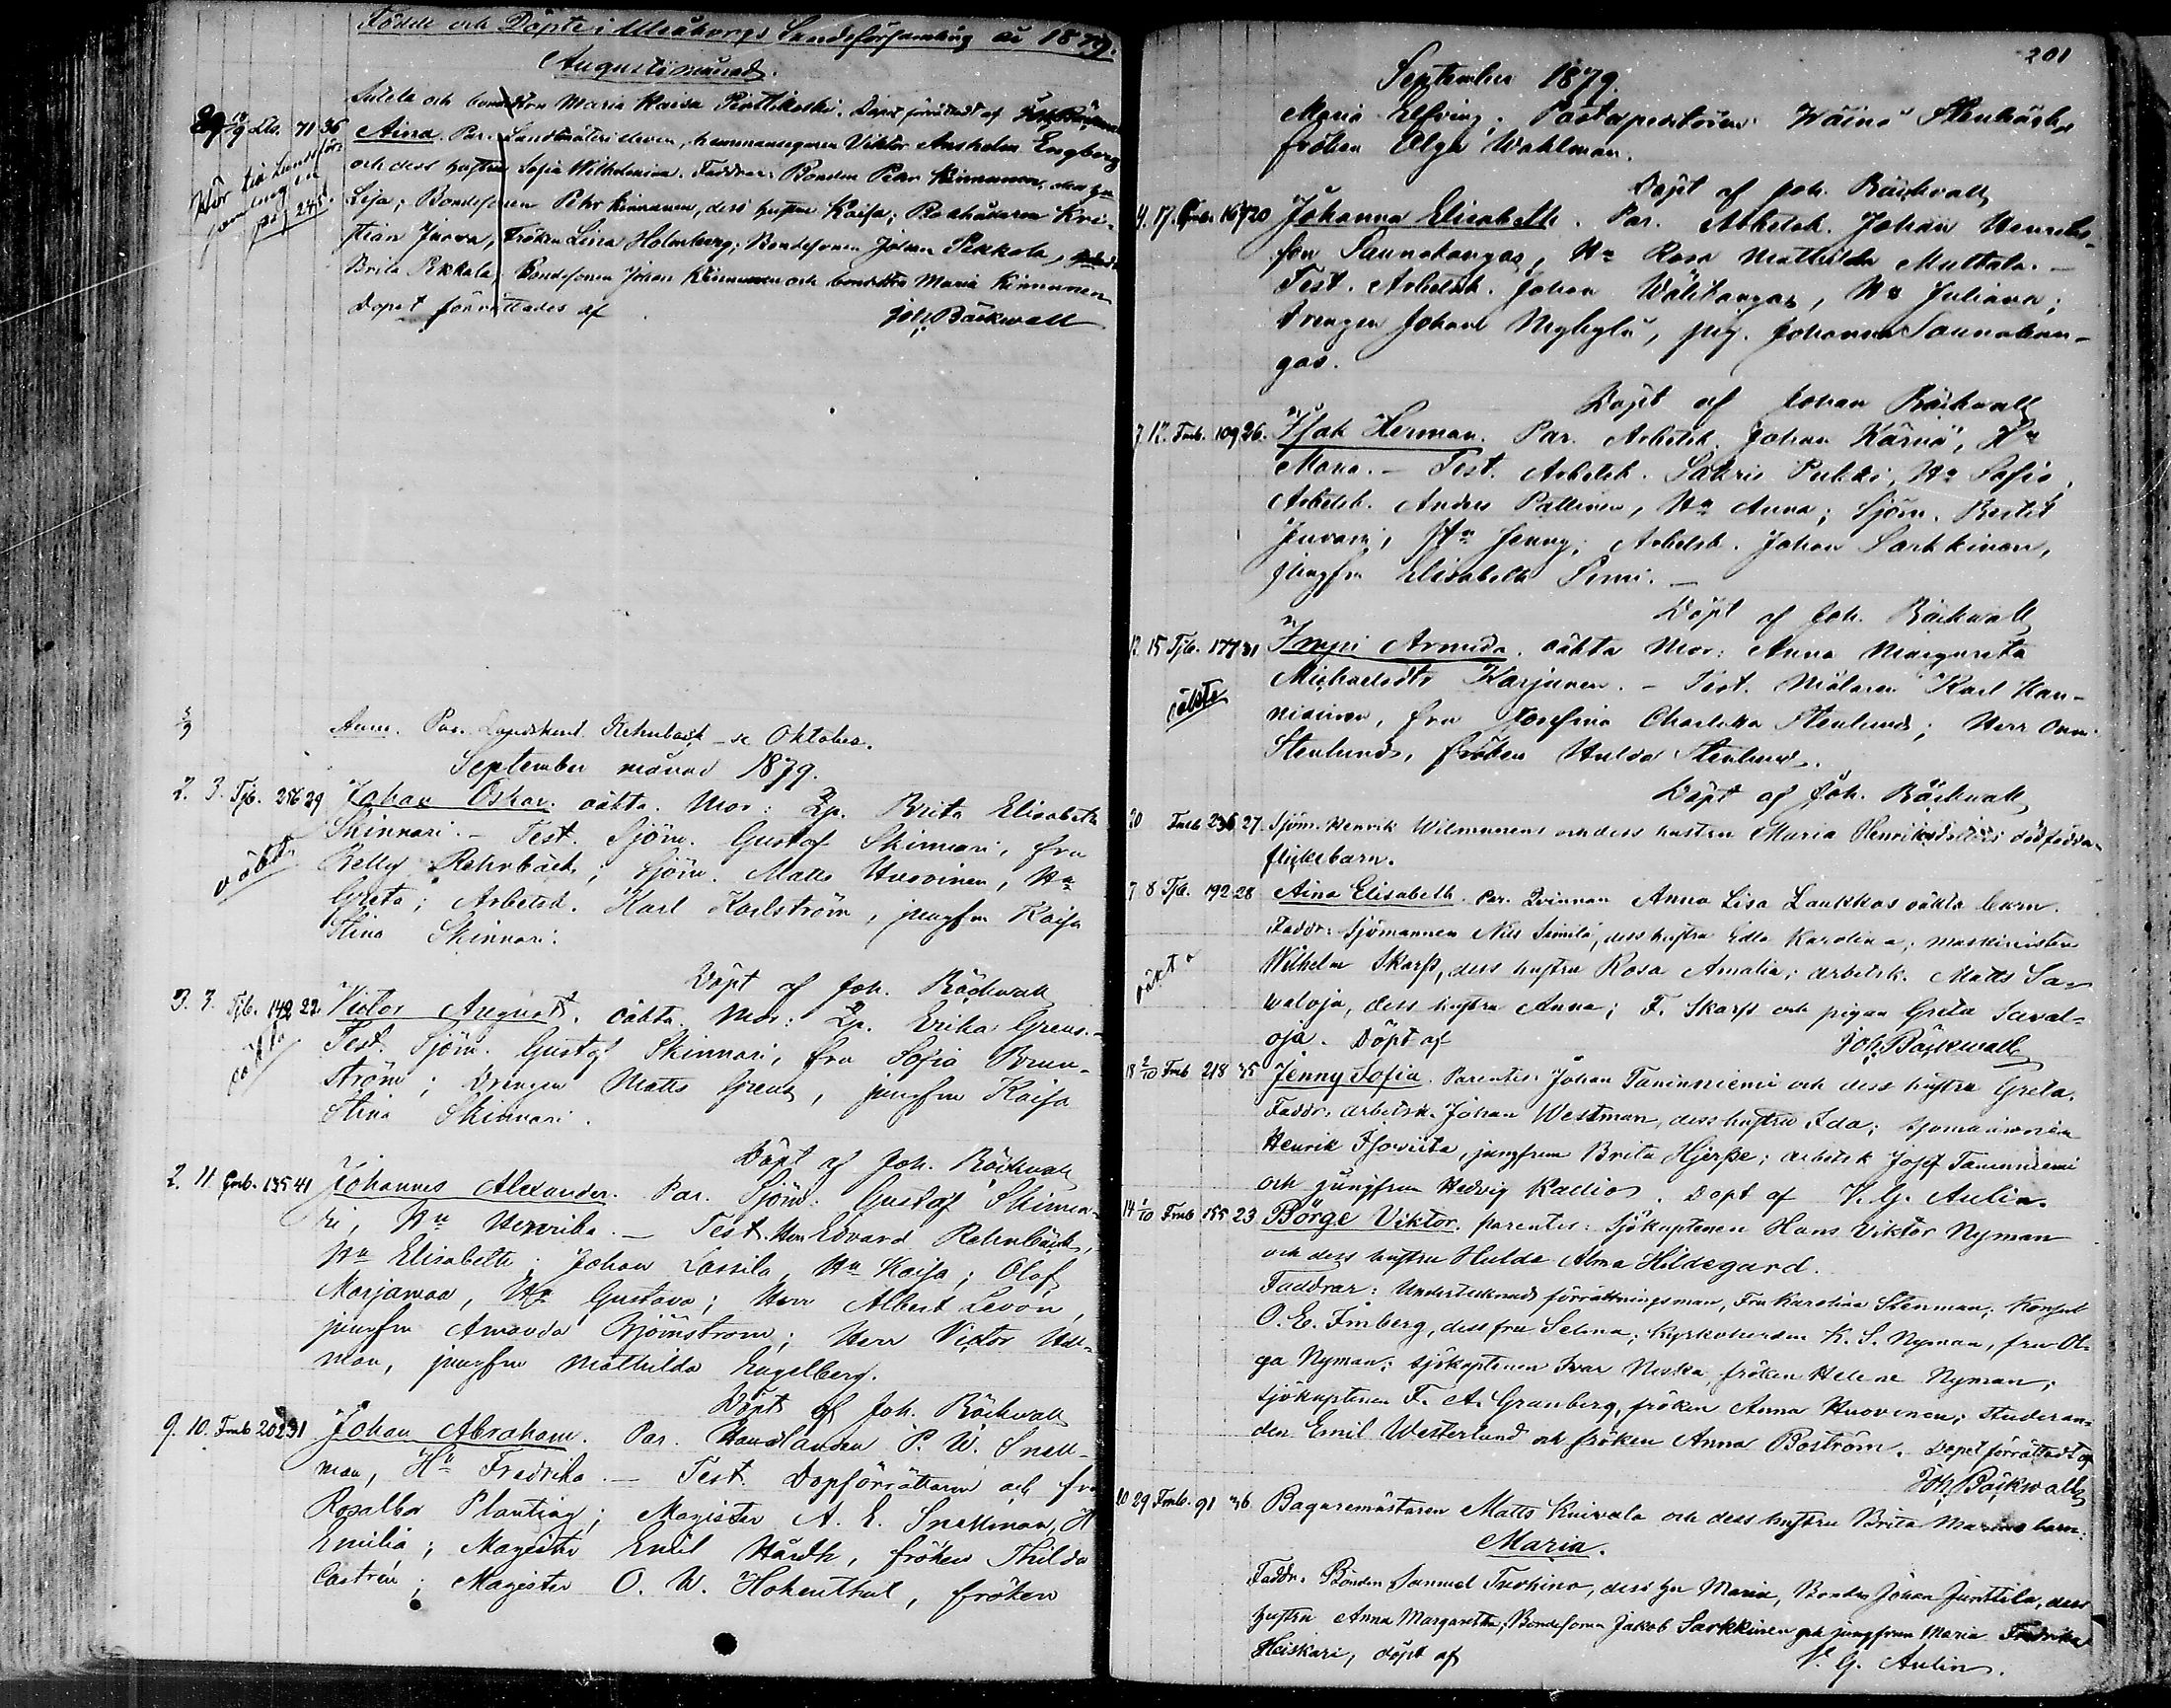 Födde och Döpte i Uleåborgs Landsförsamling år 1879.
Augusti månad.
och Maria Kaisa Dopet förrättadt af Joh. Bäckwall
29 14/9 Lls. 71 36 Aina. Par. Landtmäterieleven, hemmansegaren Viktor Ansholm Engberg
och dess hustru Sofia Wilhelmina. Faddrar: Bonden Petter Kinnunen, dess hu
Hör till Landsför
samlingen
pag 245.
Lisa; Bondesonen Petter Kinnunen, dess hustru Kaisa; Kri-
stian Juova, Fröken Lina Holmberg; Bondesonen Johan Pekkala,
Brita Pekkala; Bondesonen Johan Kinnunen och bondedtr Maria Kinnunen
Dopet förrättades af
Joh. Bäckwall
Anm. Par. Rehnbäck se Oktober.
September månad 1879.
2. 3. Tjb. 256 29 Johan Oskar. oäkta. Mor: Qp. Brita Elisabeth
Skinnari. - Test. Sjöm. Gustaf Skinnari, fru
oäkta
Rehnbäck; Sjöm. Matts Huovinen, Hu
Greta; Arbetsk. Karl Karlström, jungfru Kaisa
Stina Skinnari.
Döpt af Joh. Bäckwall
3. 7. Tjb. 149 22. Victor August. oäkta. Mor: Qp. Erika Greus.-
oäkta
Test. Sjöm. Gustaf Skinnari, fru Sofia Brun-
ström; Drengen Matts Greus, jungfru Kaisa
Stina Skinnari.
Döpt af Joh. Bäckwall
2. 11. Fmb. 135 41 Johannes Alexander. Par. Sjöm. Gustaf Skinna-
ri, Hu Henrika. - Test. Herr Edvard Rehnbäck,
Hu Elisabeth; Johan Lassila, Hu Kaisa; Olof
Marjamaa, Hu Gustava; Herr Albert Levon,
jungfru Amanda Björnström; Herr Victor
man, jungfru Mathilda Engelberg.
Döpt af Joh. Bäckwall
9. 10. Fmb 202 31 Johan Abraham. Par. Handlanden P. W. Snell-
man, Hu Fredrika. - Test. Dopförrättaren och fru
Rosalba Planting; Magister A. E. Snellman, H
Emilia; Magister Emil Hårdh, fröken Thilda
Castrén; Magister O. W. Hohenthal, fröken
201
September 1879.
Maria Elfving; Postexpeditören Wäinö Stenbäck,
fröken Olga Wahlman.
Döpt af Joh. Bäckwall
4. 17. 167 20 Johanna Elisabeth. Par. Arbetsk. Johan Henriks-
son Saunakangas, Hu Rosa Mathilda Muttala. -
Test. Arbetsk. Johan Wälikangas, Hu Juliana;
Drengen Johan Nygligly, pig. Johanna Saunakan-
gas.
Döpt af Johan Bäckwall
7. 12. Fmb. 109 26. Isak Herman. Par. Arbetsk. Johan Kärnä, Hu
Maria. - Test. Arbetsk. Sakris Pukki, Hu Sofia,
Arbetsk. Anders Pallinen, Hu Anna; Sjöm.
Juvani, Hu Jenny; Arbetsk. Johan Sarkkinen,
jungfru Elisabeth
Döpt af Joh. Bäckwall
12. 15 Tjb. 177 31 Impi Armida. oäkta Mor: Anna Margareta
Michaelsdtr Karjunen. - Test. Målaren Karl Han-
oäkta
ninen, fru Josefina Charlotta Stenlund; Herr
Stenlund, fröken Hulda Stenlund.
Döpt af Joh. Bäckwall
20 Fmb 236 27. Sjöm. Henrik Wilmunens och dess hustru Maria Henriksdotters dödfödda
flickebarn.
7 8 Tjb. 192 28 Aina Elisabeth. Par. Qvinnan Anna Lisa Laukkas oäkta barn.
Faddr. Sjömannen Nils Similä, dess hustru Edla Karolina; maskinisten
oäkta
Wilhelm Skarp, dess hustru Rosa Amalia; arbetsk. Matts Sa-
waloja, dess hustru Anna; F. Skarp och pigan Greta Saval-
oja. Döpt af
Joh. Bäckwall
18 2/10 Fmb 218 35 Jenny Sofia. Parentes: Johan Taninniemi och dess hustru Greta.
Faddr. arbetsk. Johan Westman, dess hustru Ida; sjömannen
Henrik Isoviita, jungfrun Brita Hjerpe; arbetsk Josef Taninniemi
och jungfrun Hedvig Kallio. Döpt af V. G. Aulin.
14 1/10 Fmb 155 23 Börge Viktor. parentes: Sjökaptenen Hans Viktor Nyman
och dess hustru Hulda Alma Hildegard.
Faddrar: Undertecknad förrättningsman, Fru Karolina Stenman; Konsul
O. E. Finberg, dess fru Selma; kyrkoherden K. S. Nyman, fru Ol-
ga Nyman; sjökaptenen Ivar Niska, fröken Helene Nyman;
sjökaptenen F. A. Granberg, fröken Anna Huovinen; Studeran-
den Emil Westerlund och fröken Anna Boström. Dopet förrättadt af
Joh. Bäckwall
20 29 Fmb. 91 36 Bagaremästaren Matts Kuivala och dess hustru Brita Marias barn:
Maria.
Faddr. Bonden Samuel Tuohino, dess hu Maria, Bonden Johan Junttila, dess
hustru Anna Margaretha; Bondesonen Jakob Sarkkinen och jungfrun Maria Fredrika
Heiskari, döpt af
V. G. Aulin.